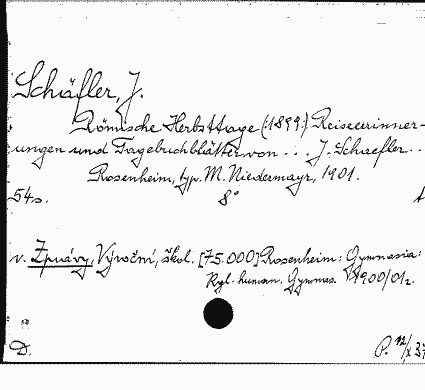 Schäfler, J.
Römische Herbsttage (:1899:) Reiseerinner-
ungen und Tagebuchblätter von ... J. Schaefler ..
Rosenheim, typ. M. Niedermayr, 1901.
54s. 8°
v. Zprávy, Výroční, škol. [75.000] Rosenheim: Gymnasia:
Kgl. human. Gymnas. 1900/01.
D. P. 12/X 37